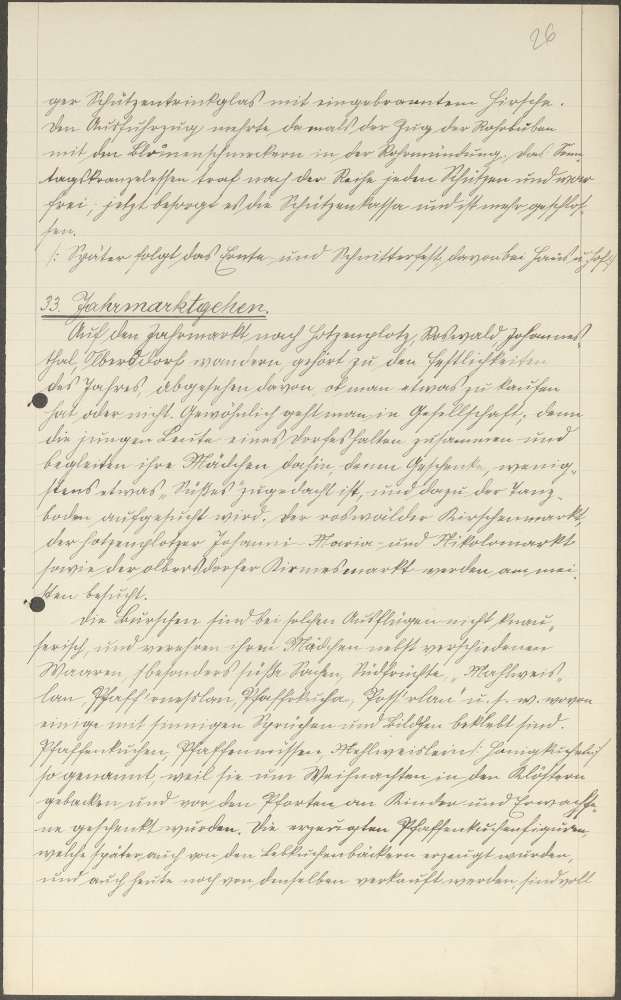 26
ger Schützentrinkglas mit eingebranntem Hirsche.
Den Ausfuhrzug mehrte damals der Zug der
mit den in der Das Sonn-
traf nach der Reihe jeden Schützen und war
frei; jetzt besorgt es die Schützenkassa und ist mehr geschlos-
sen.
/: Später folgt das Ernte- und Schnitterfest, davon bei Haus u. Hof:/
33. Jahrmarktgehen.
Auf den Jahrmarkt nach Hotzenplotz, Roswald, Johannes-
thal, Olbersdorf wandern gehört zu den Festlichkeiten
des Jahres, abgesehen davon, ob man etwas zu kaufen
hat oder nicht. Gewöhnlich geht man in Gesellschaft, denn
die jungen Leute eines Dorfes halten zusammen und
begleiten ihre Mädchen dahin, denen Geschenke, wenig-
stens etwas „Süßes" zugedacht ist, und dazu der Tanz-
boden aufgesucht wird. Der roswälder Kirschenmarkt,
der hotzenplotzer Johanni- Maria- und Nikolomarkt
sowie der olbersdorfer Kirmesmarkt werden am mei-
sten besucht.
Die Burschen sind bei solchen Ausflügen nicht knau-
serisch, und verehren ihren Mädchen nebst verschiedenen
Waaren, besonders süße Sachen, Südfrüchte, „Mahlweis-
lan, Pfaffkucha, u. s. w. wovon
einige mit sinnigen Sprüchen und Bildchen beklebt sind.
Pfaffenkuchen, Pfaffennüsse, Mehlweislein /: Honigküchel :/
so genannt, weil sie um Weihnachten in den Klöstern
gebacken und vor den Pforten an Kinder und Erwachse-
ne geschenkt wurden. Die erzeugten Pfaffenkuchenfiguren,
welche später auch von den Lebkuchenbäckern erzeugt wurden,
und auch heute noch von denselben verkauft werden, sind voll